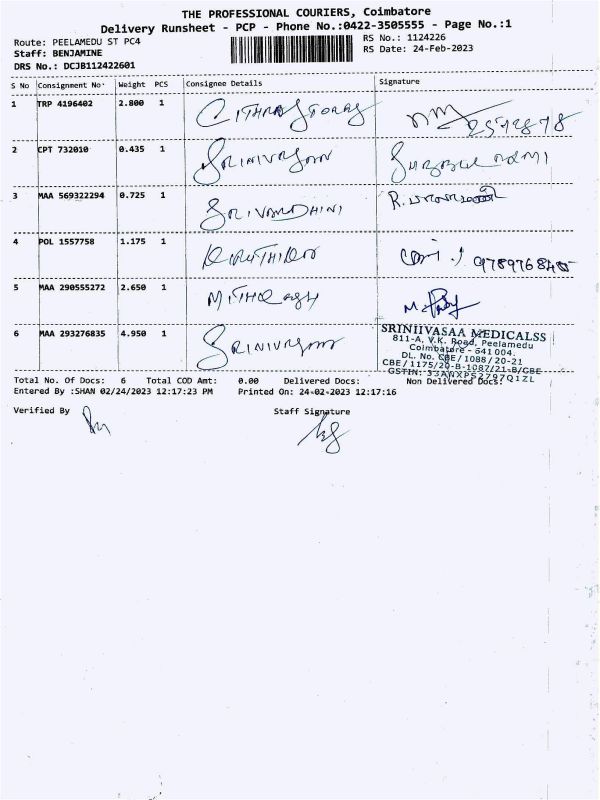 THE PROFESSIONAL COURIERS, Coimbatore
Delivery Runsheet - PCP - Phone No.:0422-3505555 - Page No.:1
Route: PEELAMEDU ST PC4
RS No.: 1124226
Staff: BENJAMINE
RS Date: 24-Feb-2023
DRS No.: DCJB112422601
S No Consignment No. Weight PCS Consignee Details Signature
1 TRP 4196402 2.800 1 CITHRA STORES
2 CPT 732010 0.435 1 SRINIVASAN
3 MAA 569322294 0.725 1 SRIVARDHINI R.
4 POL 1557758 1.175 1 9789768
5 MAA 290555272 2.650 1
6 MAA 293276835 4.950 1 SRINIVASAN
SRINIIVASAA MEDICALSS
811-A, V.K. Road, Peelamedu
Coimbatore - 641 004.
DL. No. CBE / 1088 / 20-21
CBE / 1175/20-B-1087/21-B/CBE
GSTIN: 33ANXPS2797Q1ZL
Total No. Of Docs: 6 Total COD Amt: 0.00 Delivered Docs: Non Delivered Docs:
Entered By :SHAN 02/24/2023 12:17:23 PM Printed On: 24-02-2023 12:17:16
Verified By Staff Signature